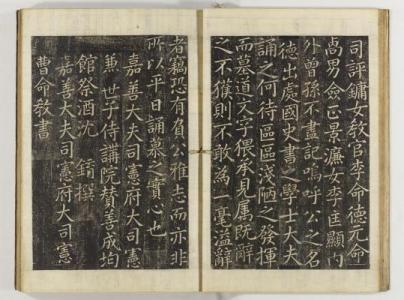 司評鏞女教官李命德元命
卨男僉正景濂女李匡顯內
外曾孫不盡記嗚呼公之名
德出處國史書之學士大夫
誦之何待區區淺陋之發揮
而墓道文字猥承見属既辭
之不獲則不敢為一毫溢辭
者竊恐有負公雅志而亦非
所以平日誦慕之實心也
嘉善大夫司憲府大司憲
兼世子侍講院贊善成均
館祭酒沈錥撰
嘉善大夫司憲府大司憲
曹命敎書